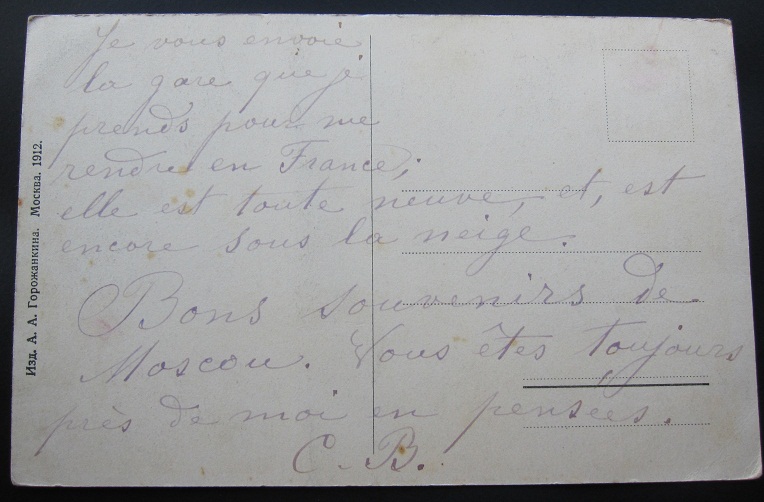 Je vous envoie
la gare que je
prends pour me
rendre en France;
elle est toute neuve, et, est
encore sous la neige.
Bons souvenirs de
Moscou. Vous êtes toujours
près de moi en pensées.
C. B.
Изд. А. А. Горожанкина. Москва. 1912.